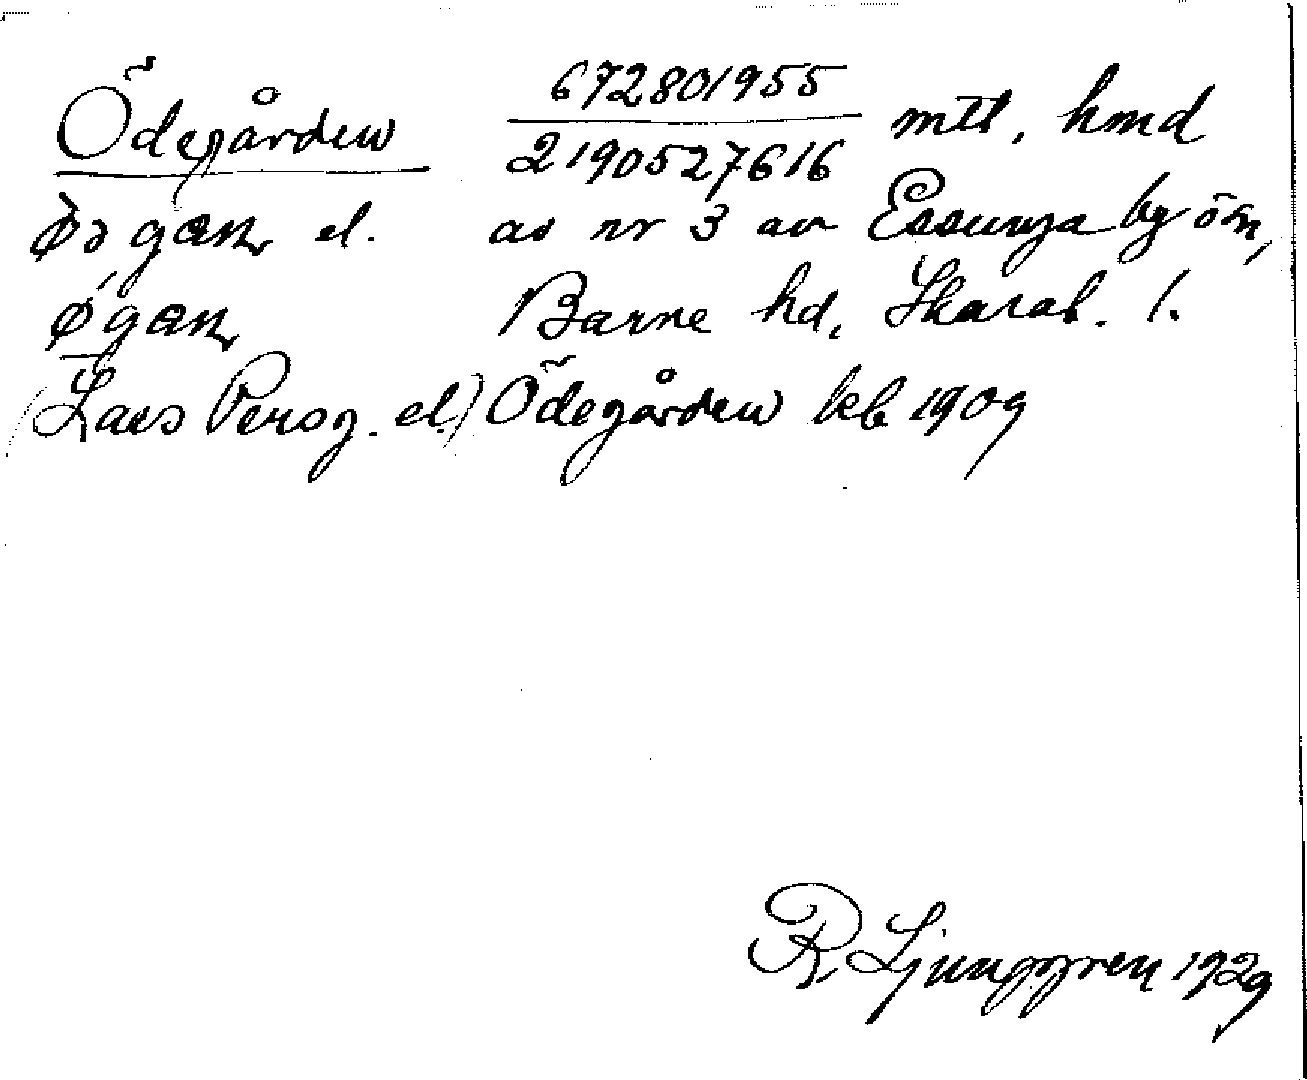 Ödegården 672801955/2190527616 mtl, hmd
el. av nr 3 av Essunga by ő sn,
Barne hd, Skarab. l.
(Lars Persg. el.) Ödegården kb 1909
R. Ljunggren 1929